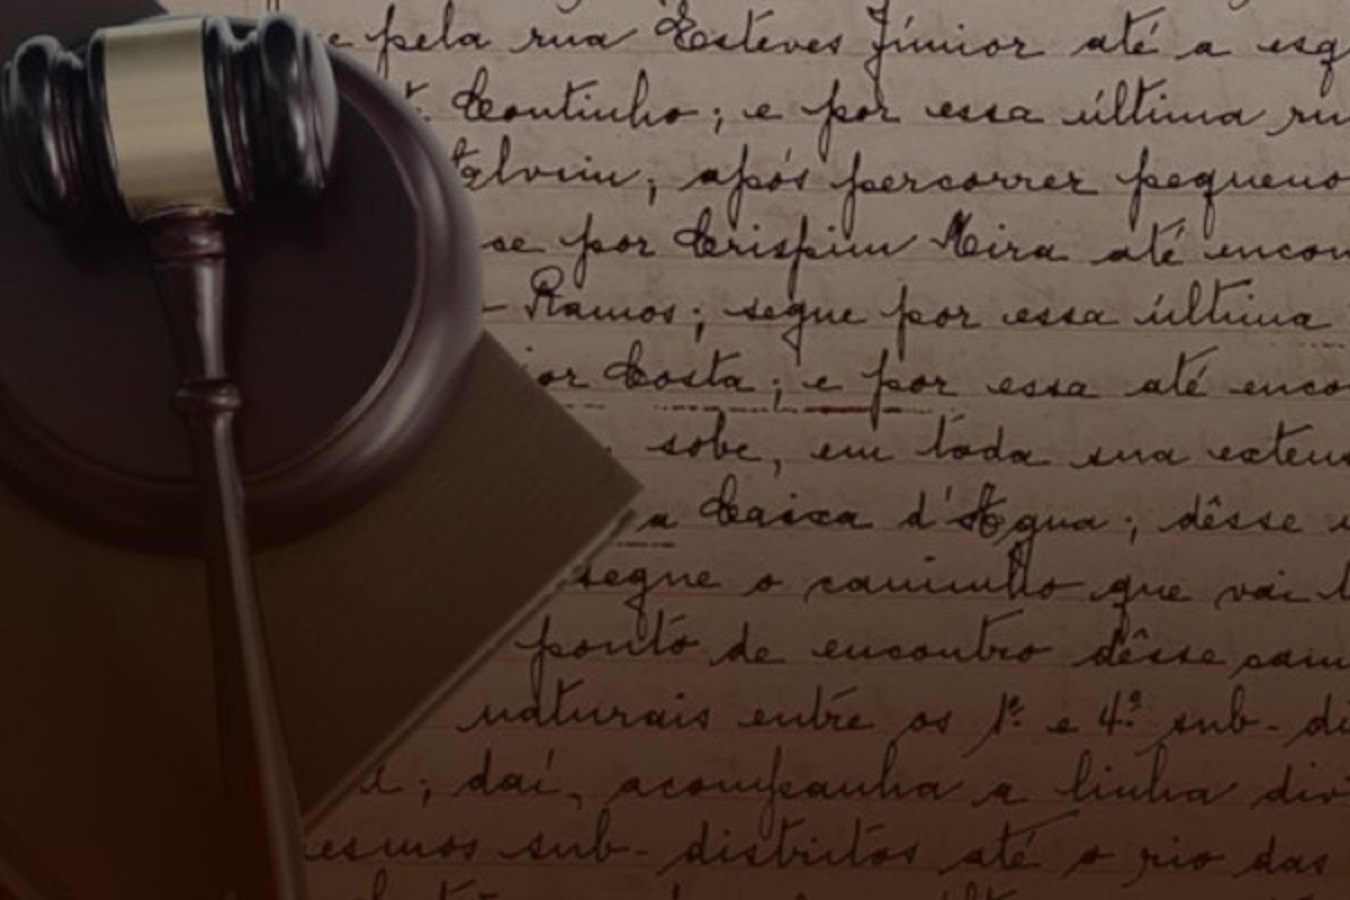 pela rua Esteves Júnior até a esq
Coutinho; e por essa última ru
Alvim; após percorrer pequeno
se por Crispim Mira até encon
Ramos; segue por essa última
or Costa; e por essa até enco
sobe, em tôda sua extens
a Caixa d'Água; dêsse
segue o caminho que vai
ponto de encontro dêsse cam
naturais entre os 1º e 4º sub-di
daí, acompanha a linha div
esmos sub-distritos até o rio das